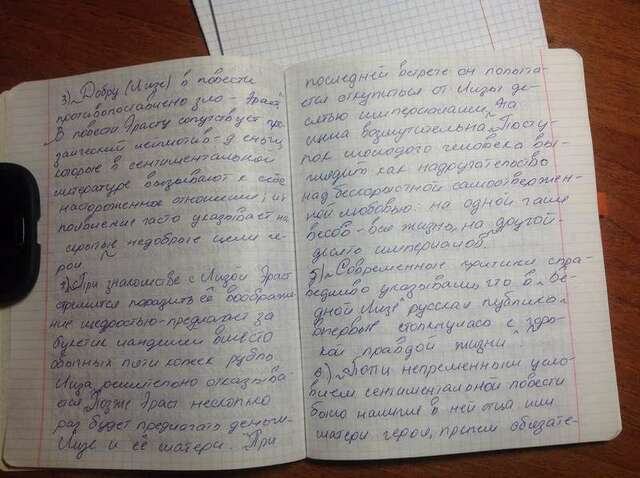 3) „Добру (Лизе) в повести
противопоставлено зло - Эраст"
„В повести Эрасту сопутствует про-
заический лейтмотив - деньги,
которые в сентиментальной
литературе вызывают к себе
настороженное отношение, их
появление часто указывает на
скрытые недобрые цели ге-
роя."
4) „При знакомстве с Лизой Эраст
стремится поразить её воображе-
ние щедростью - предлагает за
букетик ландышей вместо
обычных пяти копеек рубль.
Лиза решительно отказыва-
ется. Позже Эраст несколько
раз будет предлагать деньги -
Лизе и её матери. При
последней встрече он попыта-
ется откупиться от Лизы де-
сятью империалами."
возмутительна. Посту-
пок молодого человека вы-
глядит как надругательство
над бескорыстной самоотвержен-
ной любовью: на одной чаше
весов - вся жизнь, на другой -
десять империалов."
5) „Современные критики спра-
ведливо указывали, что в „Бе-
дной Лизе" русская публика
впервые столкнулась с „горь-
кой правдой жизни".
6) „Почти непременным усло-
вием сентиментальной повести
было наличие в ней отца или
матери героя, причем обязате-